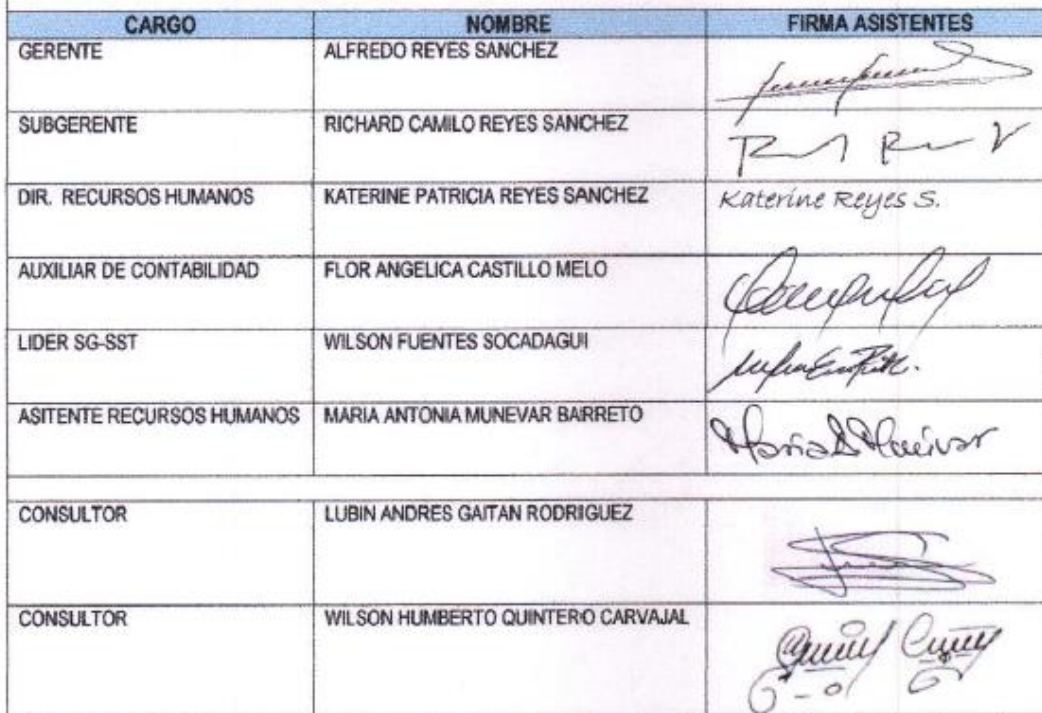 CARGO NOMBRE FIRMA ASISTENTES
GERENTE ALFREDO REYES SANCHEZ
SUBGERENTE RICHARD CAMILO REYES SANCHEZ
DIR. RECURSOS HUMANOS KATERINE PATRICIA REYES SANCHEZ Katerine Reyes S.
AUXILIAR DE CONTABILIDAD FLOR ANGELICA CASTILLO MELO
LIDER SG-SST WILSON FUENTES SOCADAGUI
ASITENTE RECURSOS HUMANOS MARIA ANTONIA MUNEVAR BARRETO Maria A Munévar
CONSULTOR LUBIN ANDRES GAITAN RODRIGUEZ
CONSULTOR WILSON HUMBERTO QUINTERO CARVAJAL